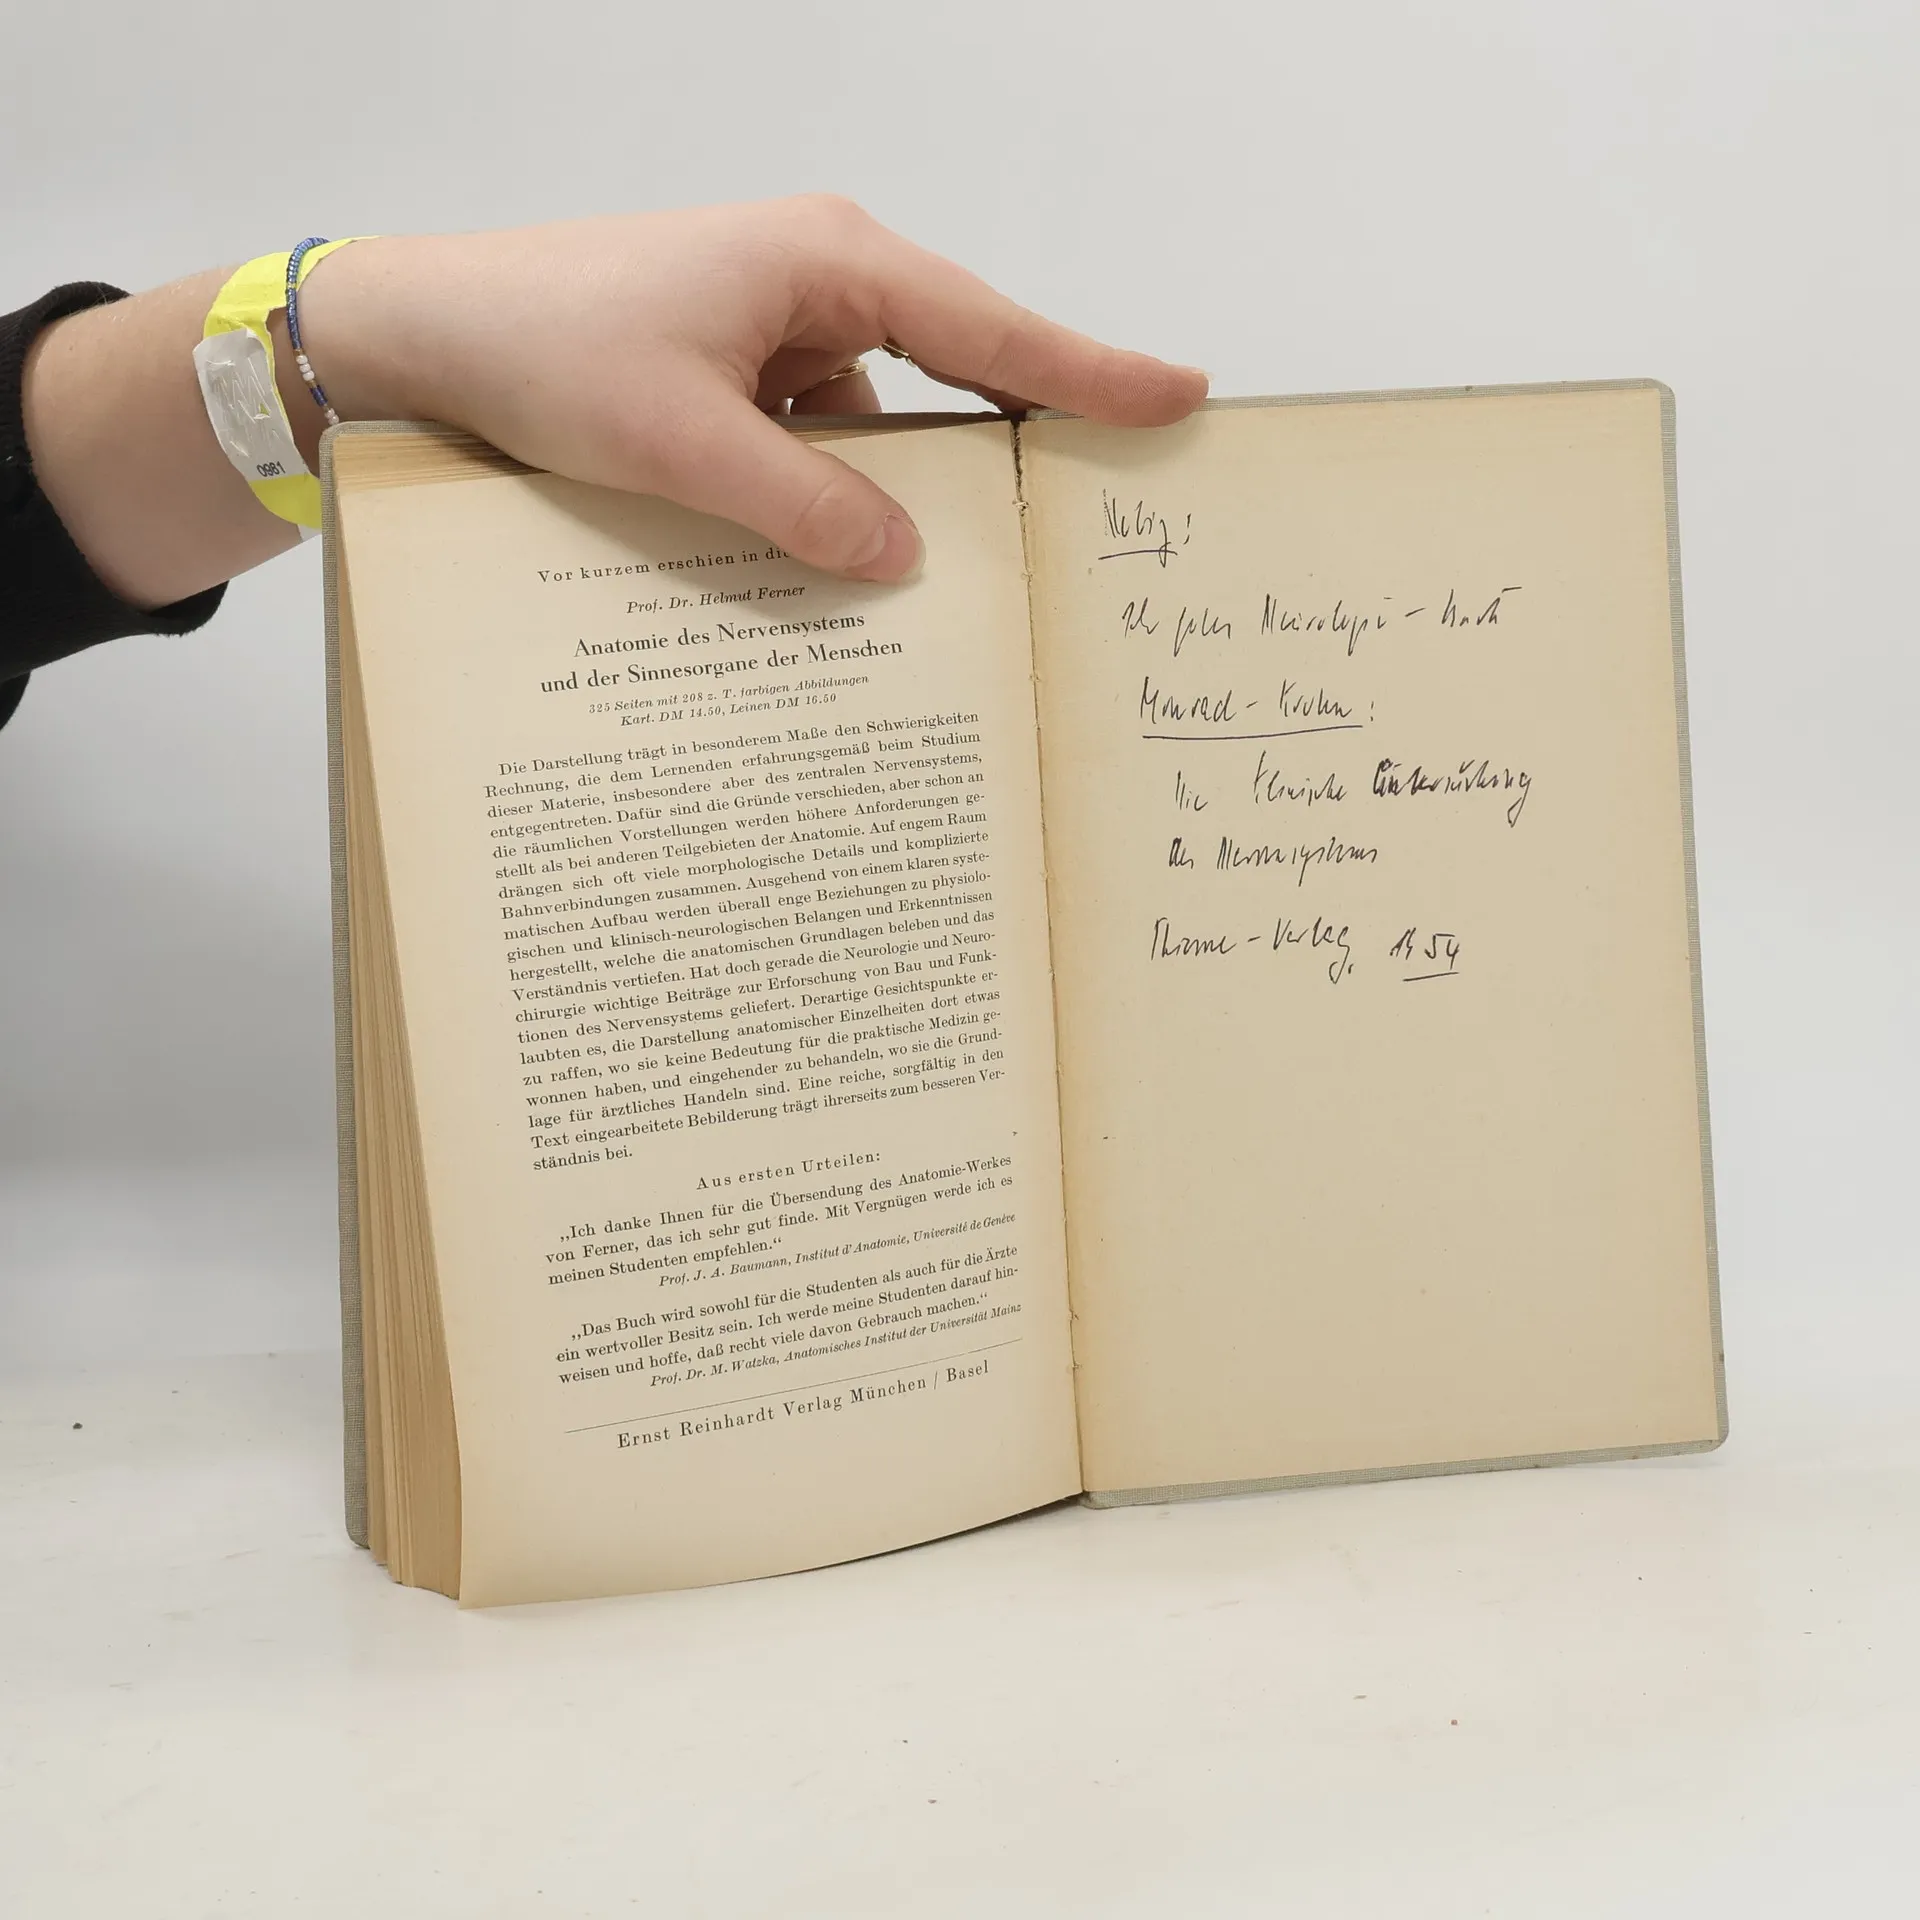 0981
Vor kurzem erschien in die
Prof. Dr. Helmut Ferner
Anatomie des Nervensystems
und der Sinnesorgane der Menschen
325 Seiten mit 208 z. T. farbigen Abbildungen
Kart. DM 14.50, Leinen DM 16.50
Die Darstellung trägt in besonderem Maße den Schwierigkeiten
Rechnung, die dem Lernenden erfahrungsgemäß beim Studium
dieser Materie, insbesondere aber des zentralen Nervensystems,
entgegentreten. Dafür sind die Gründe verschieden, aber schon an
die räumlichen Vorstellungen werden höhere Anforderungen ge-
stellt als bei anderen Teilgebieten der Anatomie. Auf engem Raum
drängen sich oft viele morphologische Details und komplizierte
Bahnverbindungen zusammen. Ausgehend von einem klaren syste-
matischen Aufbau werden überall enge Beziehungen zu physiolo-
gischen und klinisch-neurologischen Belangen und Erkenntnissen
hergestellt, welche die anatomischen Grundlagen beleben und das
Verständnis vertiefen. Hat doch gerade die Neurologie und Neuro-
chirurgie wichtige Beiträge zur Erforschung von Bau und Funk-
tionen des Nervensystems geliefert. Derartige Gesichtspunkte er-
laubten es, die Darstellung anatomischer Einzelheiten dort etwas
zu raffen, wo sie keine Bedeutung für die praktische Medizin ge-
wonnen haben, und eingehender zu behandeln, wo sie die Grund-
lage für ärztliches Handeln sind. Eine reiche, sorgfältig in den
Text eingearbeitete Bebilderung trägt ihrerseits zum besseren Ver-
ständnis bei.
Aus ersten Urteilen:
„Ich danke Ihnen für die Übersendung des Anatomie-Werkes
von Ferner, das ich sehr gut finde. Mit Vergnügen werde ich es
meinen Studenten empfehlen.“
Prof. J. A. Baumann, Institut d'Anatomie, Université de Genève
„Das Buch wird sowohl für die Studenten als auch für die Ärzte
ein wertvoller Besitz sein. Ich werde meine Studenten darauf hin-
weisen und hoffe, daß recht viele davon Gebrauch machen.“
Prof. Dr. M. Watzka, Anatomisches Institut der Universität Mainz
Ernst Reinhardt Verlag München / Basel
Neurologie -
Monrad - Krohn:
Die klinische Untersuchung
des Nervensystems
Thieme - Verlag, 1954